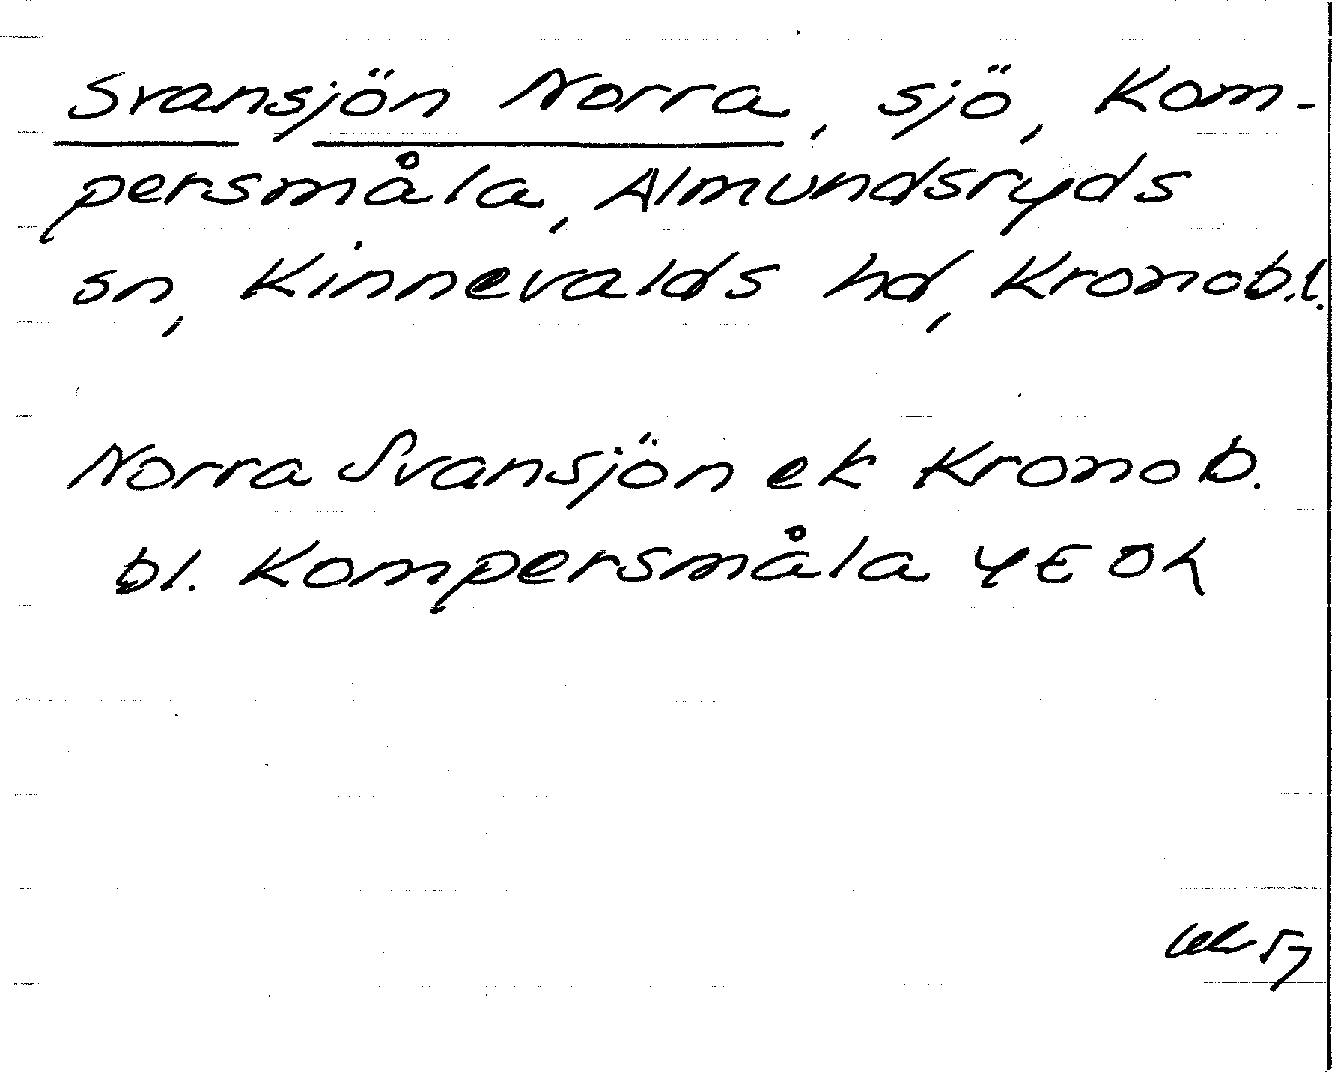 Svansjön Norra, sjö, Kom-
persmåla, Almundsryds
sn, Kinnevalds hd, Kronob.l.
Norra Svansjön ek Kronob.
bl. Kompersmåla 4E Oh
57